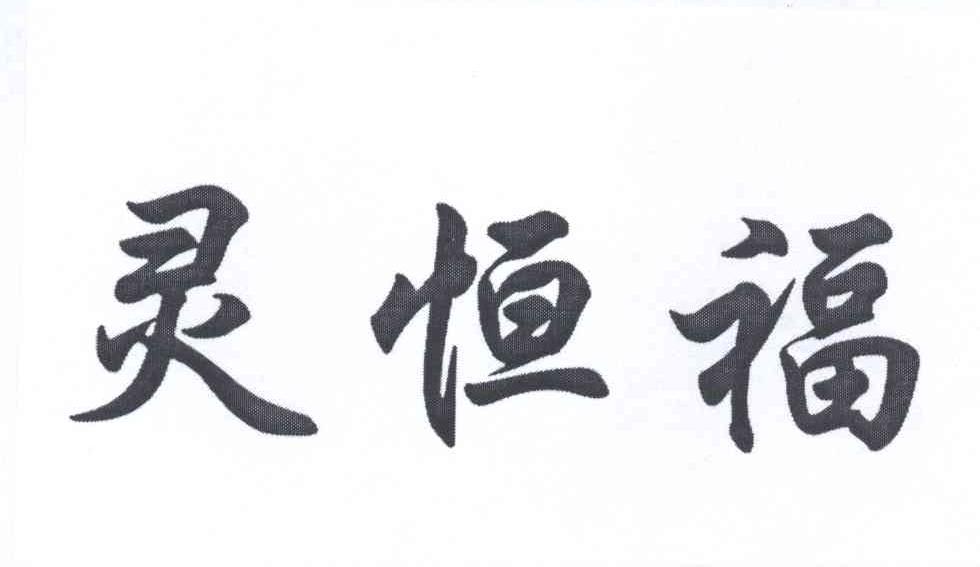 灵恒福